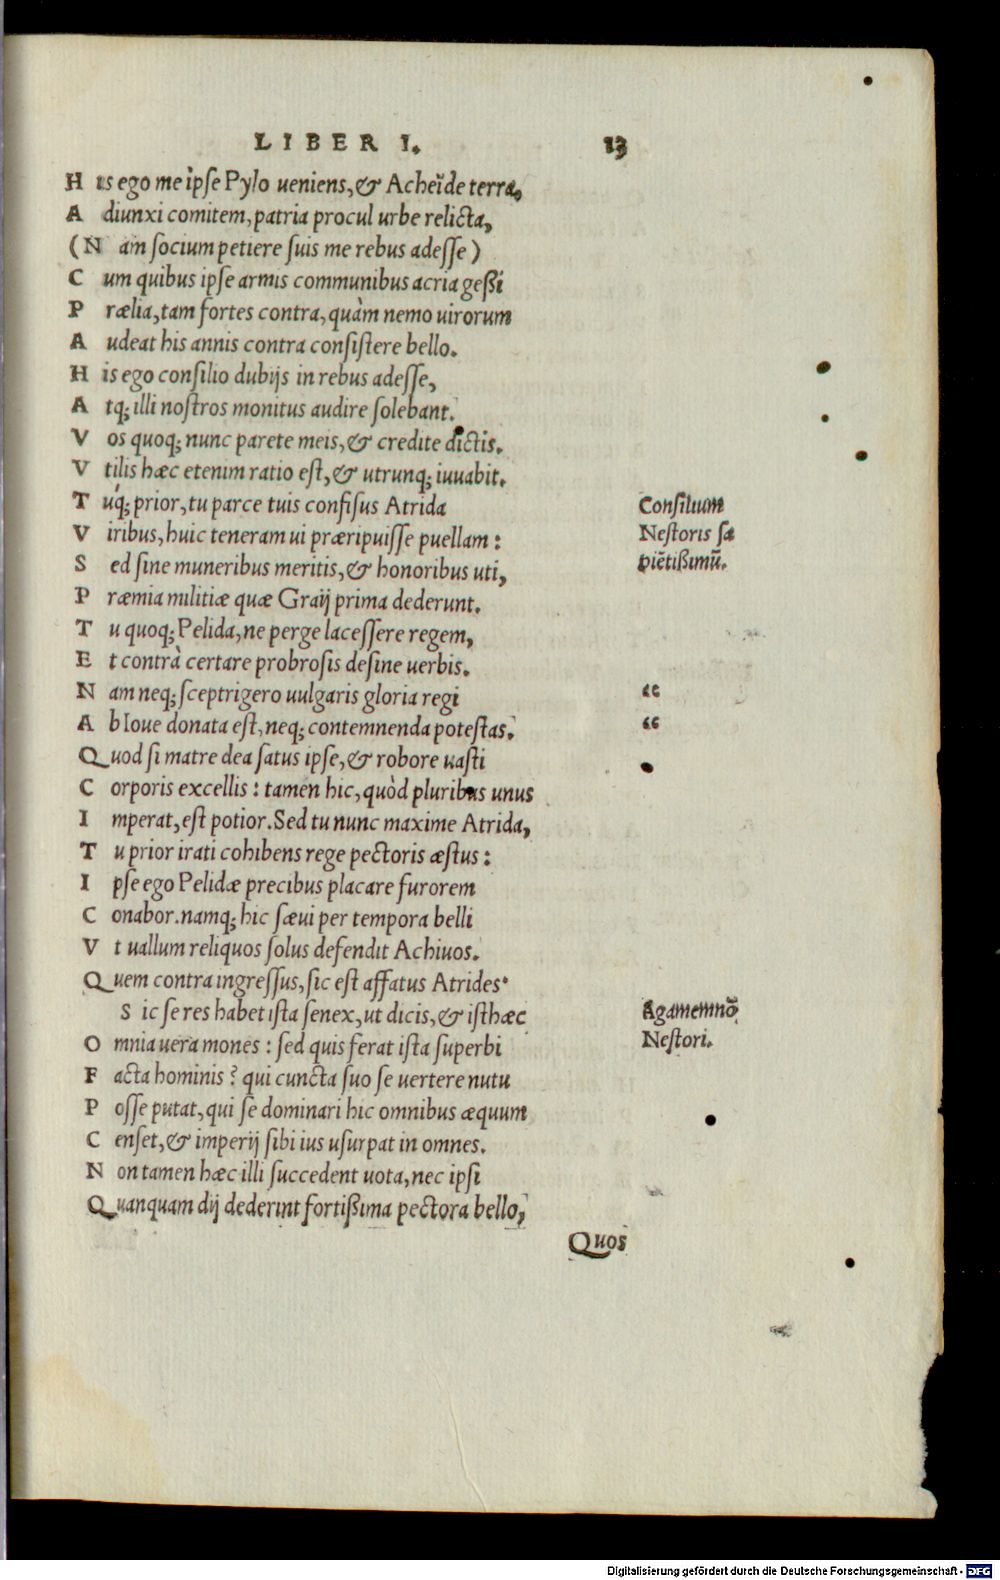 LIBER I. 13
His ego me ipse Pylo ueniens, & Acheide terra,
Adiunxi comitem, patria procul urbe relicta,
(Nam socium petiere suis me rebus adesse)
Cum quibus ipse armis communibus acria geßi
Prælia, tam fortes contra, quàm nemo uirorum
Audeat his annis contra consistere bello.
His ego consilio dubijs in rebus adesse,
Atq; illi nostros monitus audire solebant.
Vos quoq; nunc parete meis, & credite dictis.
Vtilis hæc etenim ratio est, & utrunq; iuuabit.
Túq; prior, tu parce tuis confisus Atrida
Viribus, huic teneram ui præripuisse puellam:
Sed sine muneribus meritis, & honoribus uti,
Præmia militiæ quæ Graij prima dederunt.
Tu quoq; Pelida, ne perge lacessere regem,
Et contrà certare probrosis desine uerbis.
Nam neq; sceptrigero uulgaris gloria regi
Ab Ioue donata est, neq; contemnenda potestas.
Quod si matre dea satus ipse, & robore uasti
Corporis excellis: tamen hic, quòd pluribus unus
Imperat, est potior. Sed tu nunc maxime Atrida,
Tu prior irati cohibens rege pectoris æstus:
Ipse ego Pelidæ precibus placare furorem
Conabor. namq; hic sæui per tempora belli
Vt uallum reliquos solus defendit Achiuos.
Quem contra ingressus, sic est affatus Atrides.
Sic se res habet ista senex, ut dicis, & isthæc
Omnia uera mones: sed quis ferat ista superbi
Facta hominis? qui cuncta suo se uertere nutu
Posse putat, qui se dominari hic omnibus æquum
Censet, & imperij sibi ius usurpat in omnes.
Non tamen hæc illi succedent uota, nec ipsi
Quanquam dij dederint fortißima pectora bello,
Quos
Consilium
Nestoris sa
piētißimū.
“
“
Agamemnō
Nestori.
Digitalisierung gefördert durch die Deutsche Forschungsgemeinschaft - DFG